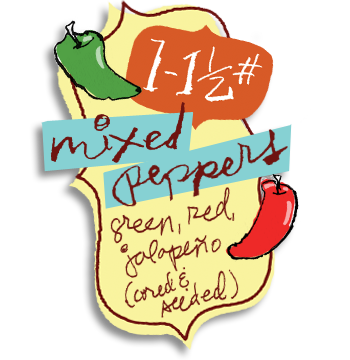 1-1½#
mixed
peppers
green, red,
jalapeño
(cored &
seeded)